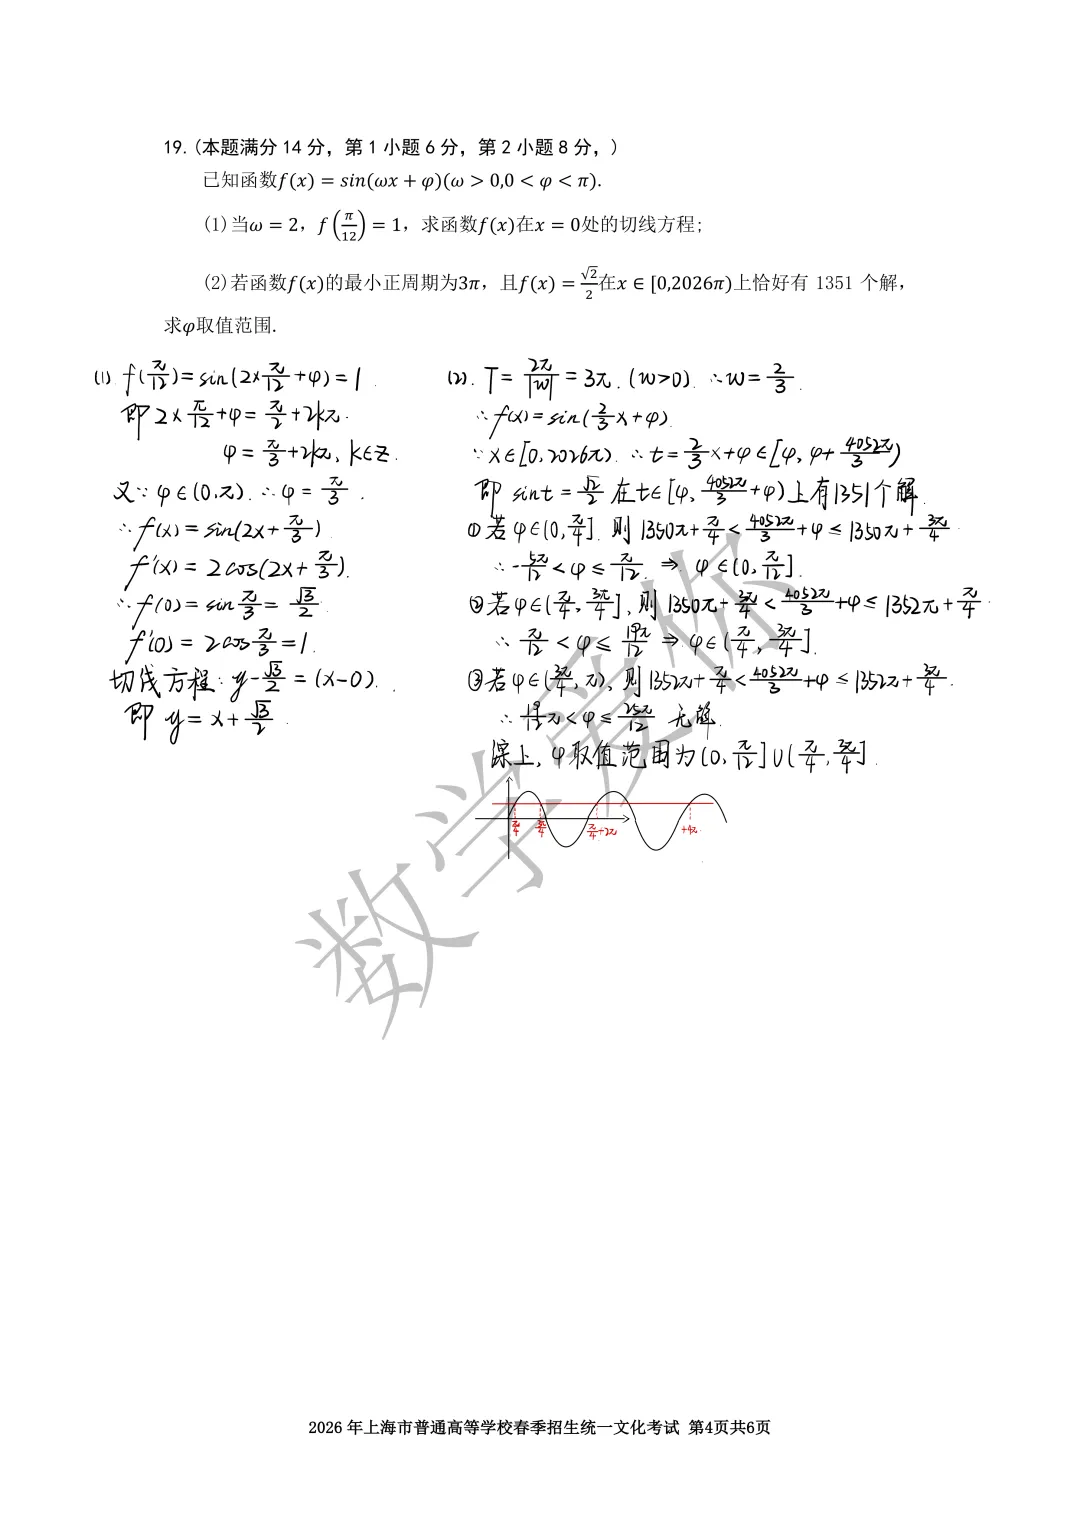 19.(本题满分 14 分，第 1 小题 6 分，第 2 小题 8 分，)
已知函数f(x) = sin(ωx + φ)(ω > 0,0 < φ < π).
(1)当ω = 2，f(π/12) = 1，求函数f(x)在x = 0处的切线方程;
(2)若函数f(x)的最小正周期为3π，且f(x) = √2/2在x ∈ [0,2026π)上恰好有 1351 个解，
求φ取值范围.
(1). f(π/12)=sin(2×π/12+φ)=1.
即 2×π/12+φ=π/2+2kπ.
φ=π/3+2kπ, k∈Z.
又∵φ∈(0,π).∴φ=π/3.
∴f(x)=sin(2x+π/3)
f'(x)=2cos(2x+π/3).
∴f(0)=sinπ/3=√3/2
f'(0)=2cosπ/3=1.
切线方程: y-√3/2=(x-0).
即 y=x+√3/2.
(2). T=2π/|w|=3π.(w>0).∴w=2/3.
∴f(x)=sin(2/3x+φ).
∵x∈[0,2026π).∴t=2/3x+φ∈[φ,φ+4052π/3)
即 sint=√2/2 在t∈[φ,4052π/3+φ)上有1351个解.
①若φ∈(0,π/4].则1350π+π/4<4052π/3+φ≤1350π+3π/4.
∴-5π/12<φ≤π/12.⇒.φ∈(0,π/12].
②若φ∈(π/4,3π/4],则1350π+3π/4<4052π/3+φ≤1352π+π/4
∴π/12<φ≤19π/12⇒φ∈(π/4,3π/4].
③若φ∈(3π/4,π),则1352π+π/4<4052π/3+φ≤1352π+3π/4.
∴19/12π<φ≤25π/12 无解.
综上,φ取值范围为(0,π/12]∪(π/4,3π/4].
π/4 3π/4 π/4+2π +4π
数学爱你
2026 年上海市普通高等学校春季招生统一文化考试 第4页共6页